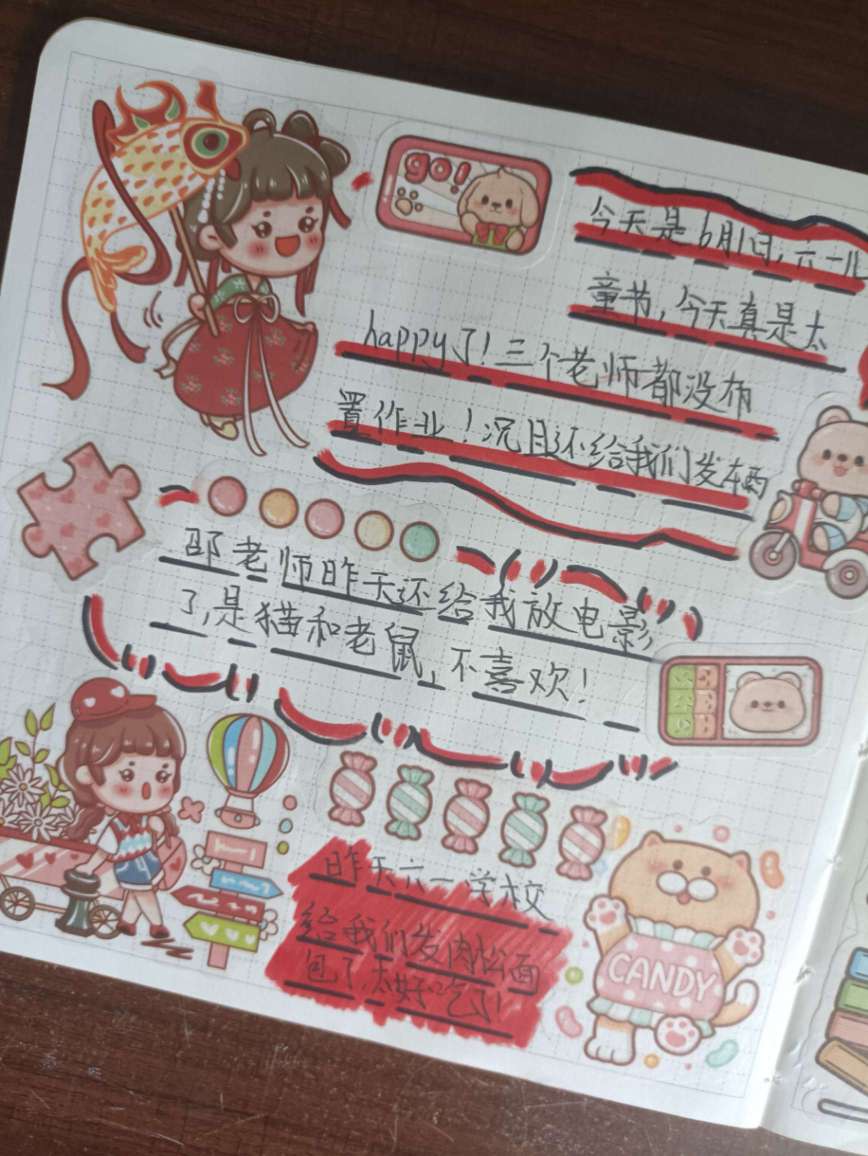 go!
今天是6月1日,六一儿
童节,今天真是太
happy了!三个老师都没布
置作业!况且还给我们发东西
邵老师昨天还给我放电影
了,是猫和老鼠,不喜欢!
昨天六一学校
给我们发肉松面
包了,太好吃了!
CANDY